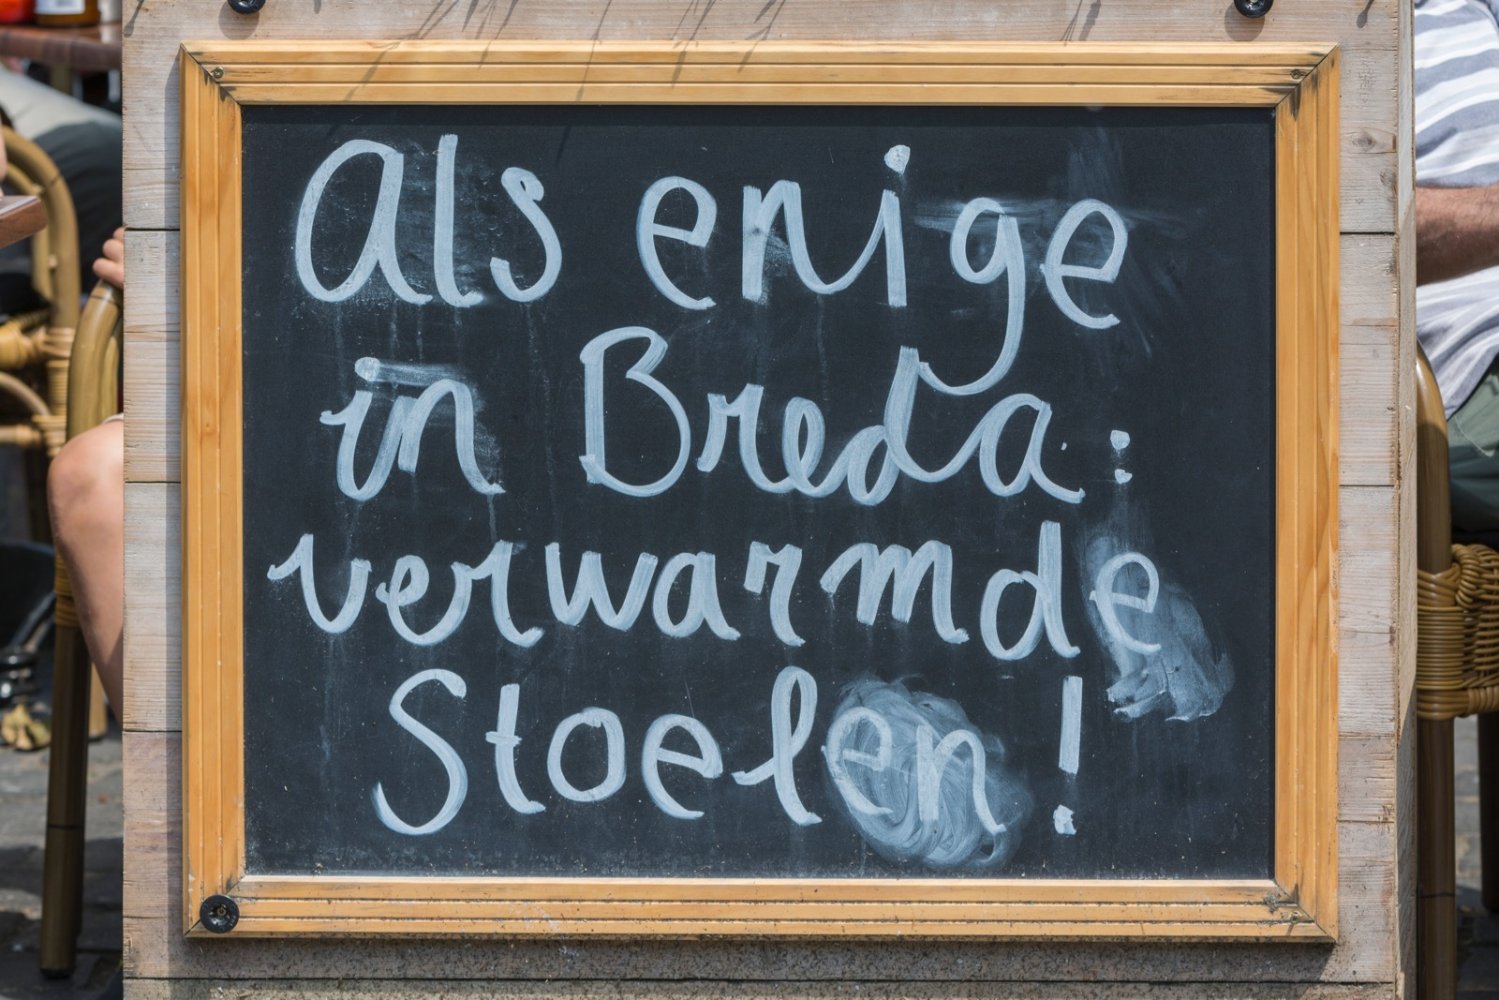 Als enige
in Breda:
verwarmde
Stoelen!